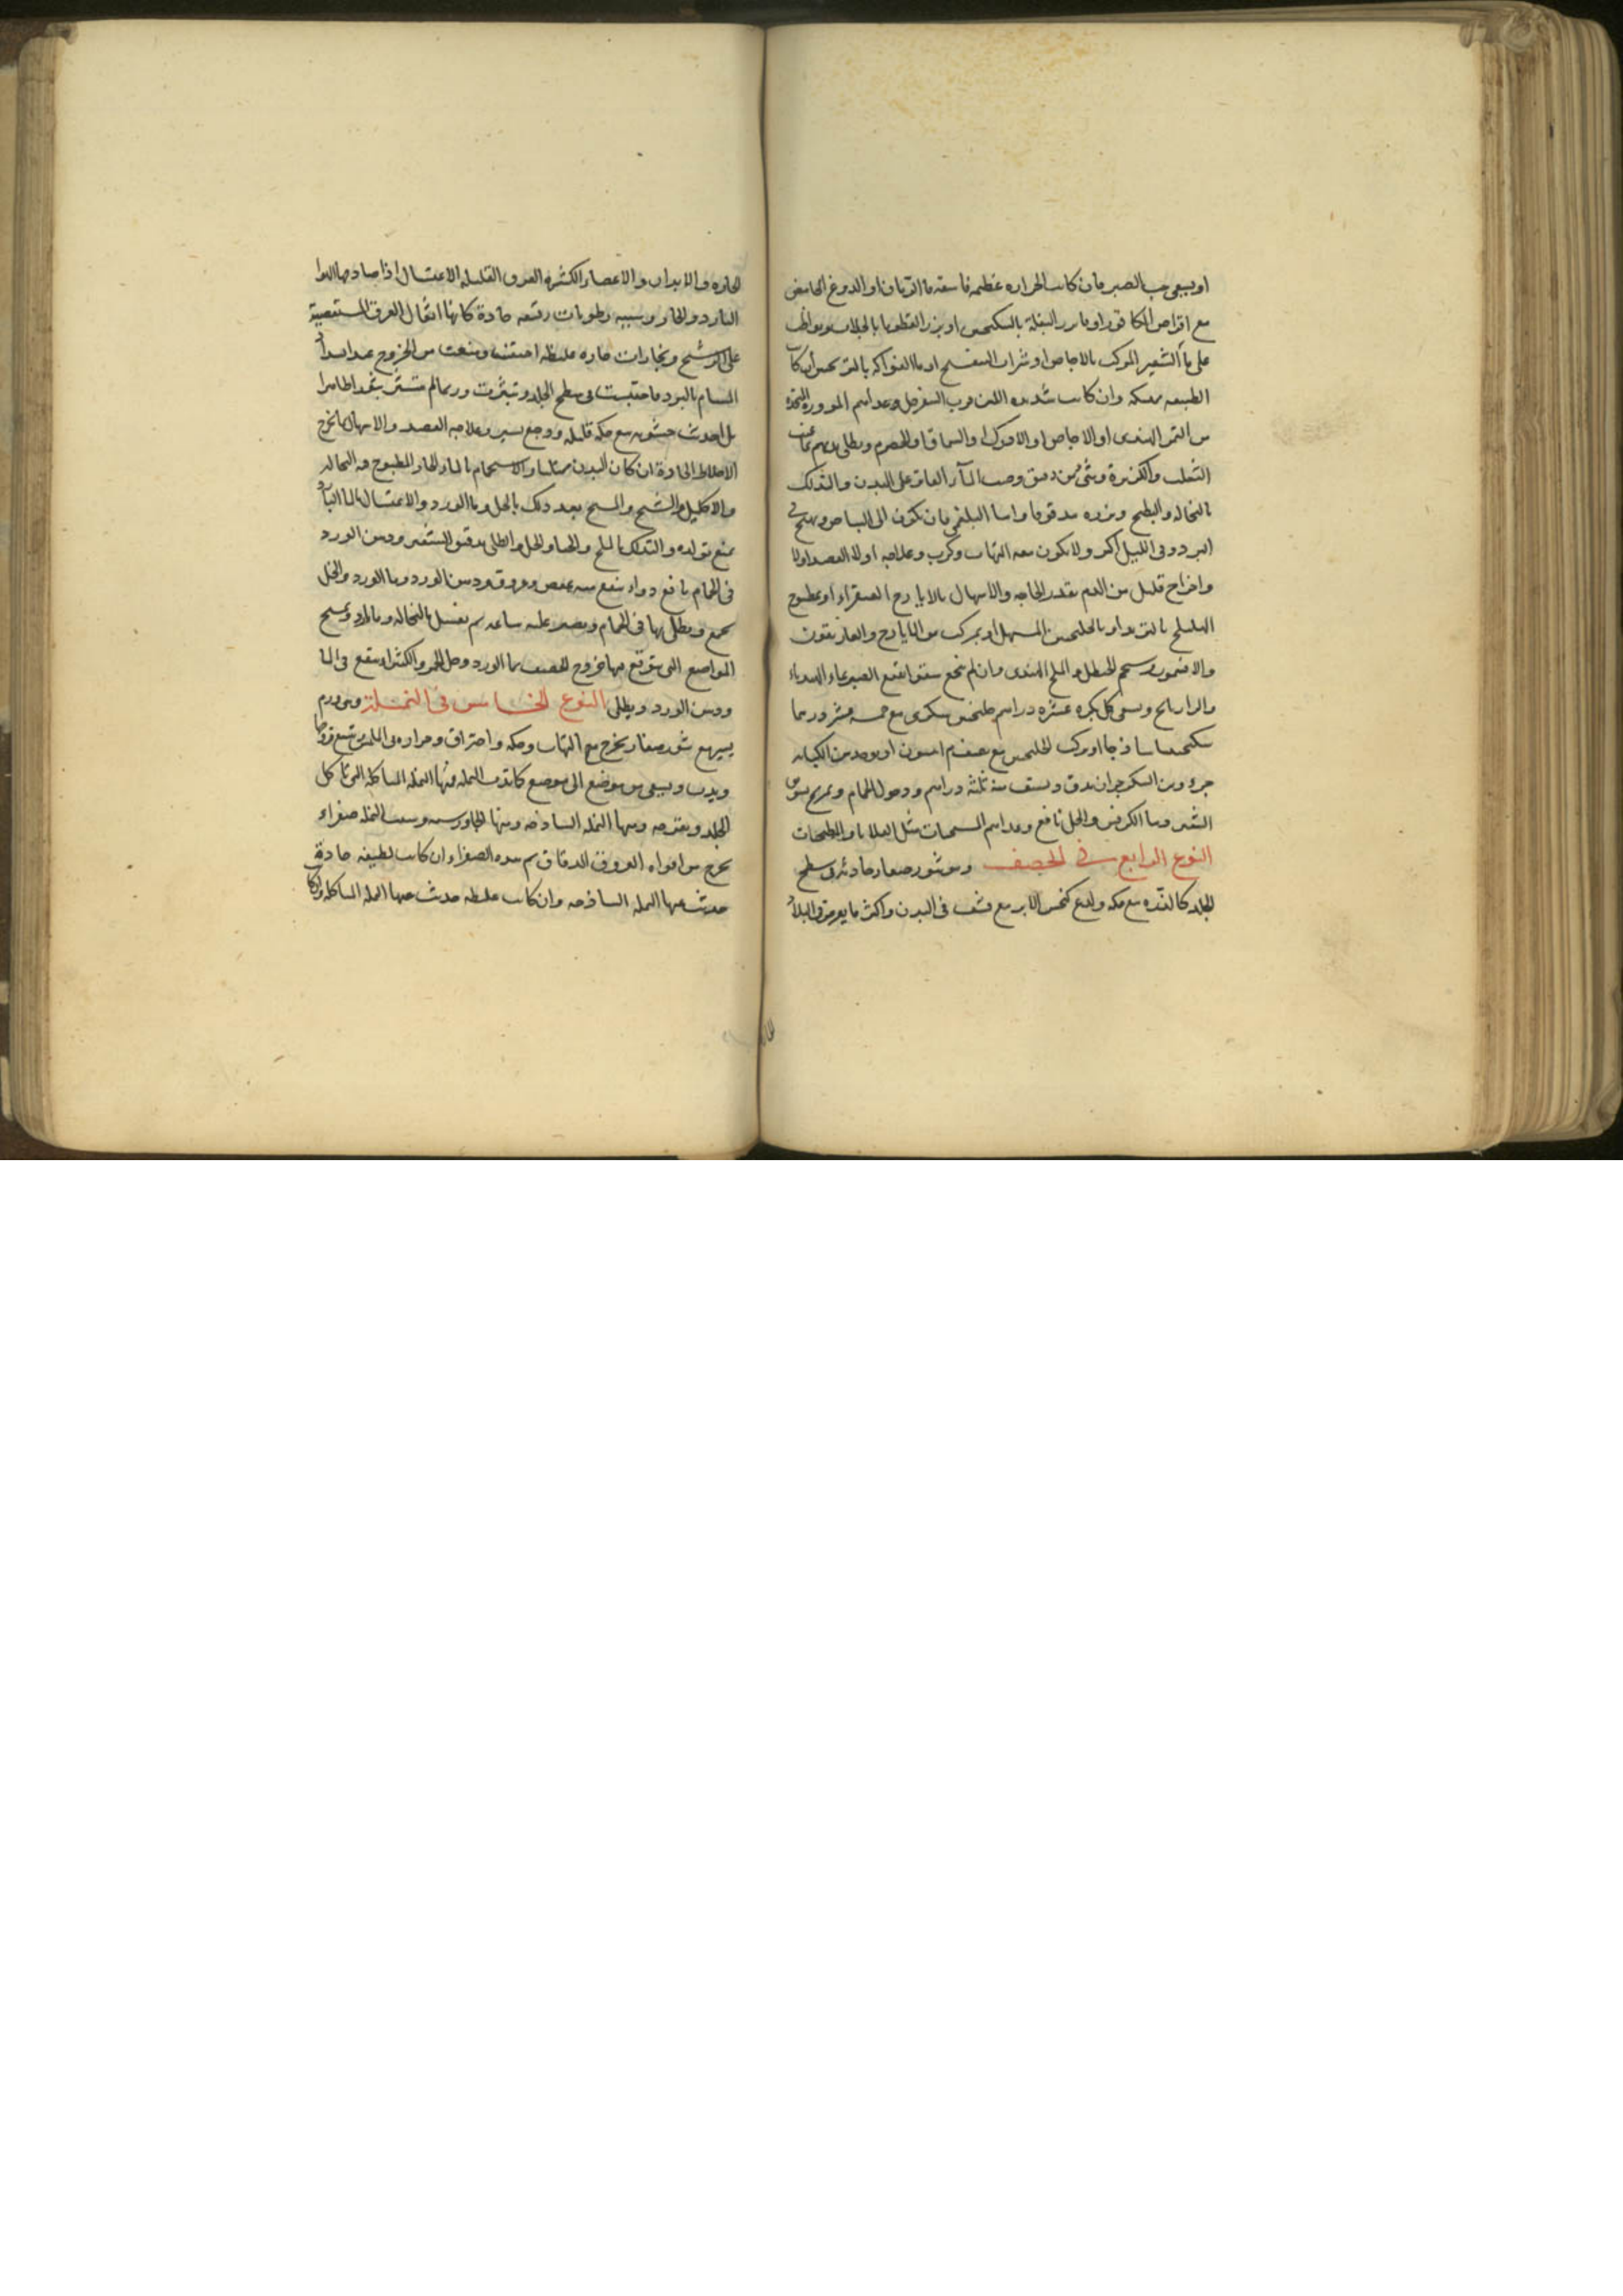 او يسقى حب الصبر فان كانت الحراره عظيمه فاسقه ما الرمان او الدوغ الحامض
مع اقراص الكافور او ما بزر البقلة بالسكنجبين او بزر القطونا بالجلاب
على ما الشعير المركب بالاجاص او شراب البنفسج او ما الفواكه بالترنجبين ان كانت
الطبيعه ممسكه وان كانت شديده اللين فرب السفرجل وغذاهم المزوره المتخذه
من التمر الهندى او الاجاص او السماق او الحصرم ويطلى بدنهم بما عنب
الثعلب والكزبرة وشى من دقيق وصب المآء الفاتر على البدن والتدلك
بالنخاله والبطيخ وبزره مدقوقا واما البلغمى فان تكون الى البياض ويهيج فى
البرد وفى الليل اكثر ولا يكون معه التهاب وكرب وعلاجه اولا الفصد اولا
واخراج قليل من الدم بقدر الحاجه والاسهال بالايارج الصقراء او بمطبوخ
الهليلج بالتربد او بالخلنجبين المسهل او بمركب من الايارج والغاريقون
والافتيمون وشحم الحنظل والملح الهندى وان لم ينجع سقى نقيع الصبر بماء الهندباء
والرازيانج ويسقى كل بكره عشره دراهم جلنجبين سكرى مع خمسه عشر درهما
سكنجبينا ساذجا او مركب الجلنجبين مع نصف درهم انيسون او يوخذ من الكبابه
جزء ومن السكر جزان يدق ويستف منه ثلثة دراهم ودخول الحمام وتمريخ بسويق
الشعير وما الكرفس والخل نافع وغذاهم المسخنات مثل القلايا والمطجنات
النوع الرابع فى الحصف وهو بثور صغار حادثه فى سطح
الجلد كالذره مع حكه ولذع كنخس الابر مع قشف فى البدن واكثر ما يعرض فى البلاد
الحاره والابدان والاعضاء الكثيره العرق القليله الاغتسال اذا صادمها الهوا
البارد والحار وسببه رطوبات رقيقه حادة كانها اثقال العرق المستعصية
على الرشح وبخارات حاره غليظه احتقنت ومنعت من الخروج عند انسداد
المسام بالبرد فاحتبست فى سطح الجلد وتبثرت وربما لم تتبثر بثرا ظاهرا
بل احدثت خشونه مع حكه قليله ووجع يسير وعلاجه الفصد والاسهال بما يخرج
الاخلاط الحادة ان كان البدن ممتليا والاستحمام بالماء الحار المطبوخ فيه النخاله
والاكليل والشيح والمسح بعد ذلك بالخل وما الورد والاغتسال بالما البارد
يمنع تولده والتدلك بالملح والحنا والخل والطلى بدقيق الشعير ودهن الورد
فى الحمام نافع دواء ينفع منه عفص وورق ودهن الورد وما الورد والخل
يجمع ويطلى بها فى الحمام ويصبر عليه ساعه ثم يغسل بالنخاله وبالماء ويمسح
المواضع التى يتوقع فيها خروج الحصف بما الورد وخل الخمر والكثيرا ينقع فى الما
ودهن الورد ويطلى النوع الخامس فى النملة وهى ورم
يسير مع بثور صغار يخرج مع التهاب وحكه واحتراق وحراره فى اللمس تتسع قروحا
ويدب ويسعى من موضع الى موضع كما تدب النمله فمنها النمله المتاكله التى تاكل
الجلد ويقرحه ومنها النمله الساذجه ومنها الجاورسيه وسبب النمله صفراء
تخرج من افواه العروق الدقاق ثم هذه الصفراء ان كانت لطيفه حادة
حدث عنها النمله الساذجه وان كانت غليظه حدث عنها النمله المتاكله وان كانت